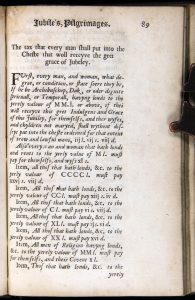 Jubile's, Pilgrimages. 89
The tax that every man shall put into the
Cheste that woll receyve the gret
grace of Jubeley.
First, every man, and woman, what de-
gree, or condition, or state soere they be,
If he be Archebusshop, Duk, or oder dignite
spirituall, or Temporall, havyng londs to the
yerely valour of MM. l. or above, if they
will receyve this gret Indulgens and Grace
of this Jubiley, for themselfs, and ther wyfs,
and chyldern not maryed, shall wythout
put into the cheste ordeyned for that entent
of trew and lawful mony, iij l. vj s. viij d.
Also every man and woman that hath londs
and rents to the yerly value of M l. must
pay for themselfs, and wyfs xl s.
Item, all thos that hath londs, &c. to the
yerly valour of CCCC l. must pay
vj s. viij d.
Item, All thos that hath londs, &c. to the
yerly valour of CC l. must pay xiij s. iv d.
Item, All thos that hath londs, &c. to the
yerly valour of C l. must pay vj s. viij d.
Item, All thos that hath londs, &c. to the
yerly valour of XL l. must pay ij s. vj d.
Item, All thos that hath londs, &c. to the
yerly valour of XX l. must pay xvj d.
Item, All men of Religion havyng londs,
&c. to the yerely valour of MM l. must pay
for themselfs, and their Covent x l.
Item, Thos that hath londs, &c. to the
yerely